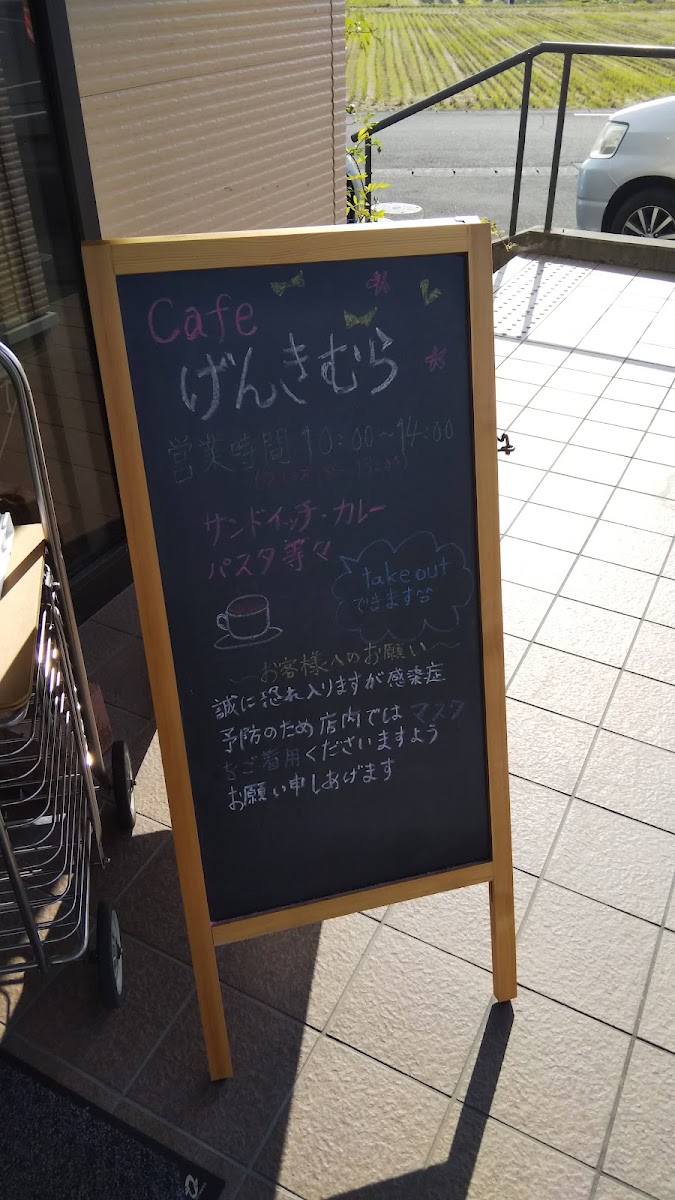 Cafe
げんきむら
営業時間 10:00~14:00
サンドイッチ・カレー
パスタ等々
take out
できます
~お客様へのお願い~
誠に恐れ入りますが感染症
予防のため店内ではマスク
をご着用くださいますよう
お願い申しあげます